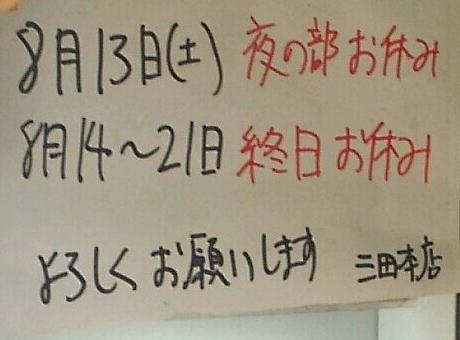 8月13日(土) 夜の部 お休み
8月14～21日 終日 お休み
よろしく お願いします 三田本店